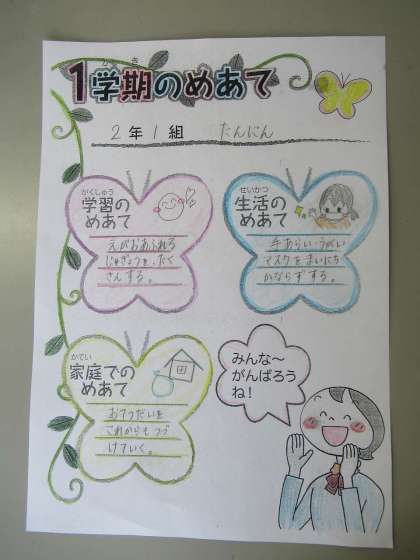 1学期のめあて
2年1組 たんにん
がくしゅう
学習の
めあて
えがおあふれる
じゅぎょうを、たく
さんする。
せいかつ
生活の
めあて
手あらい・うがい
マスクをまいにち
かならずする。
かてい
家庭での
めあて
おてつだいを
これからもつづ
けていく。
みんな~
がんばろう
ね!